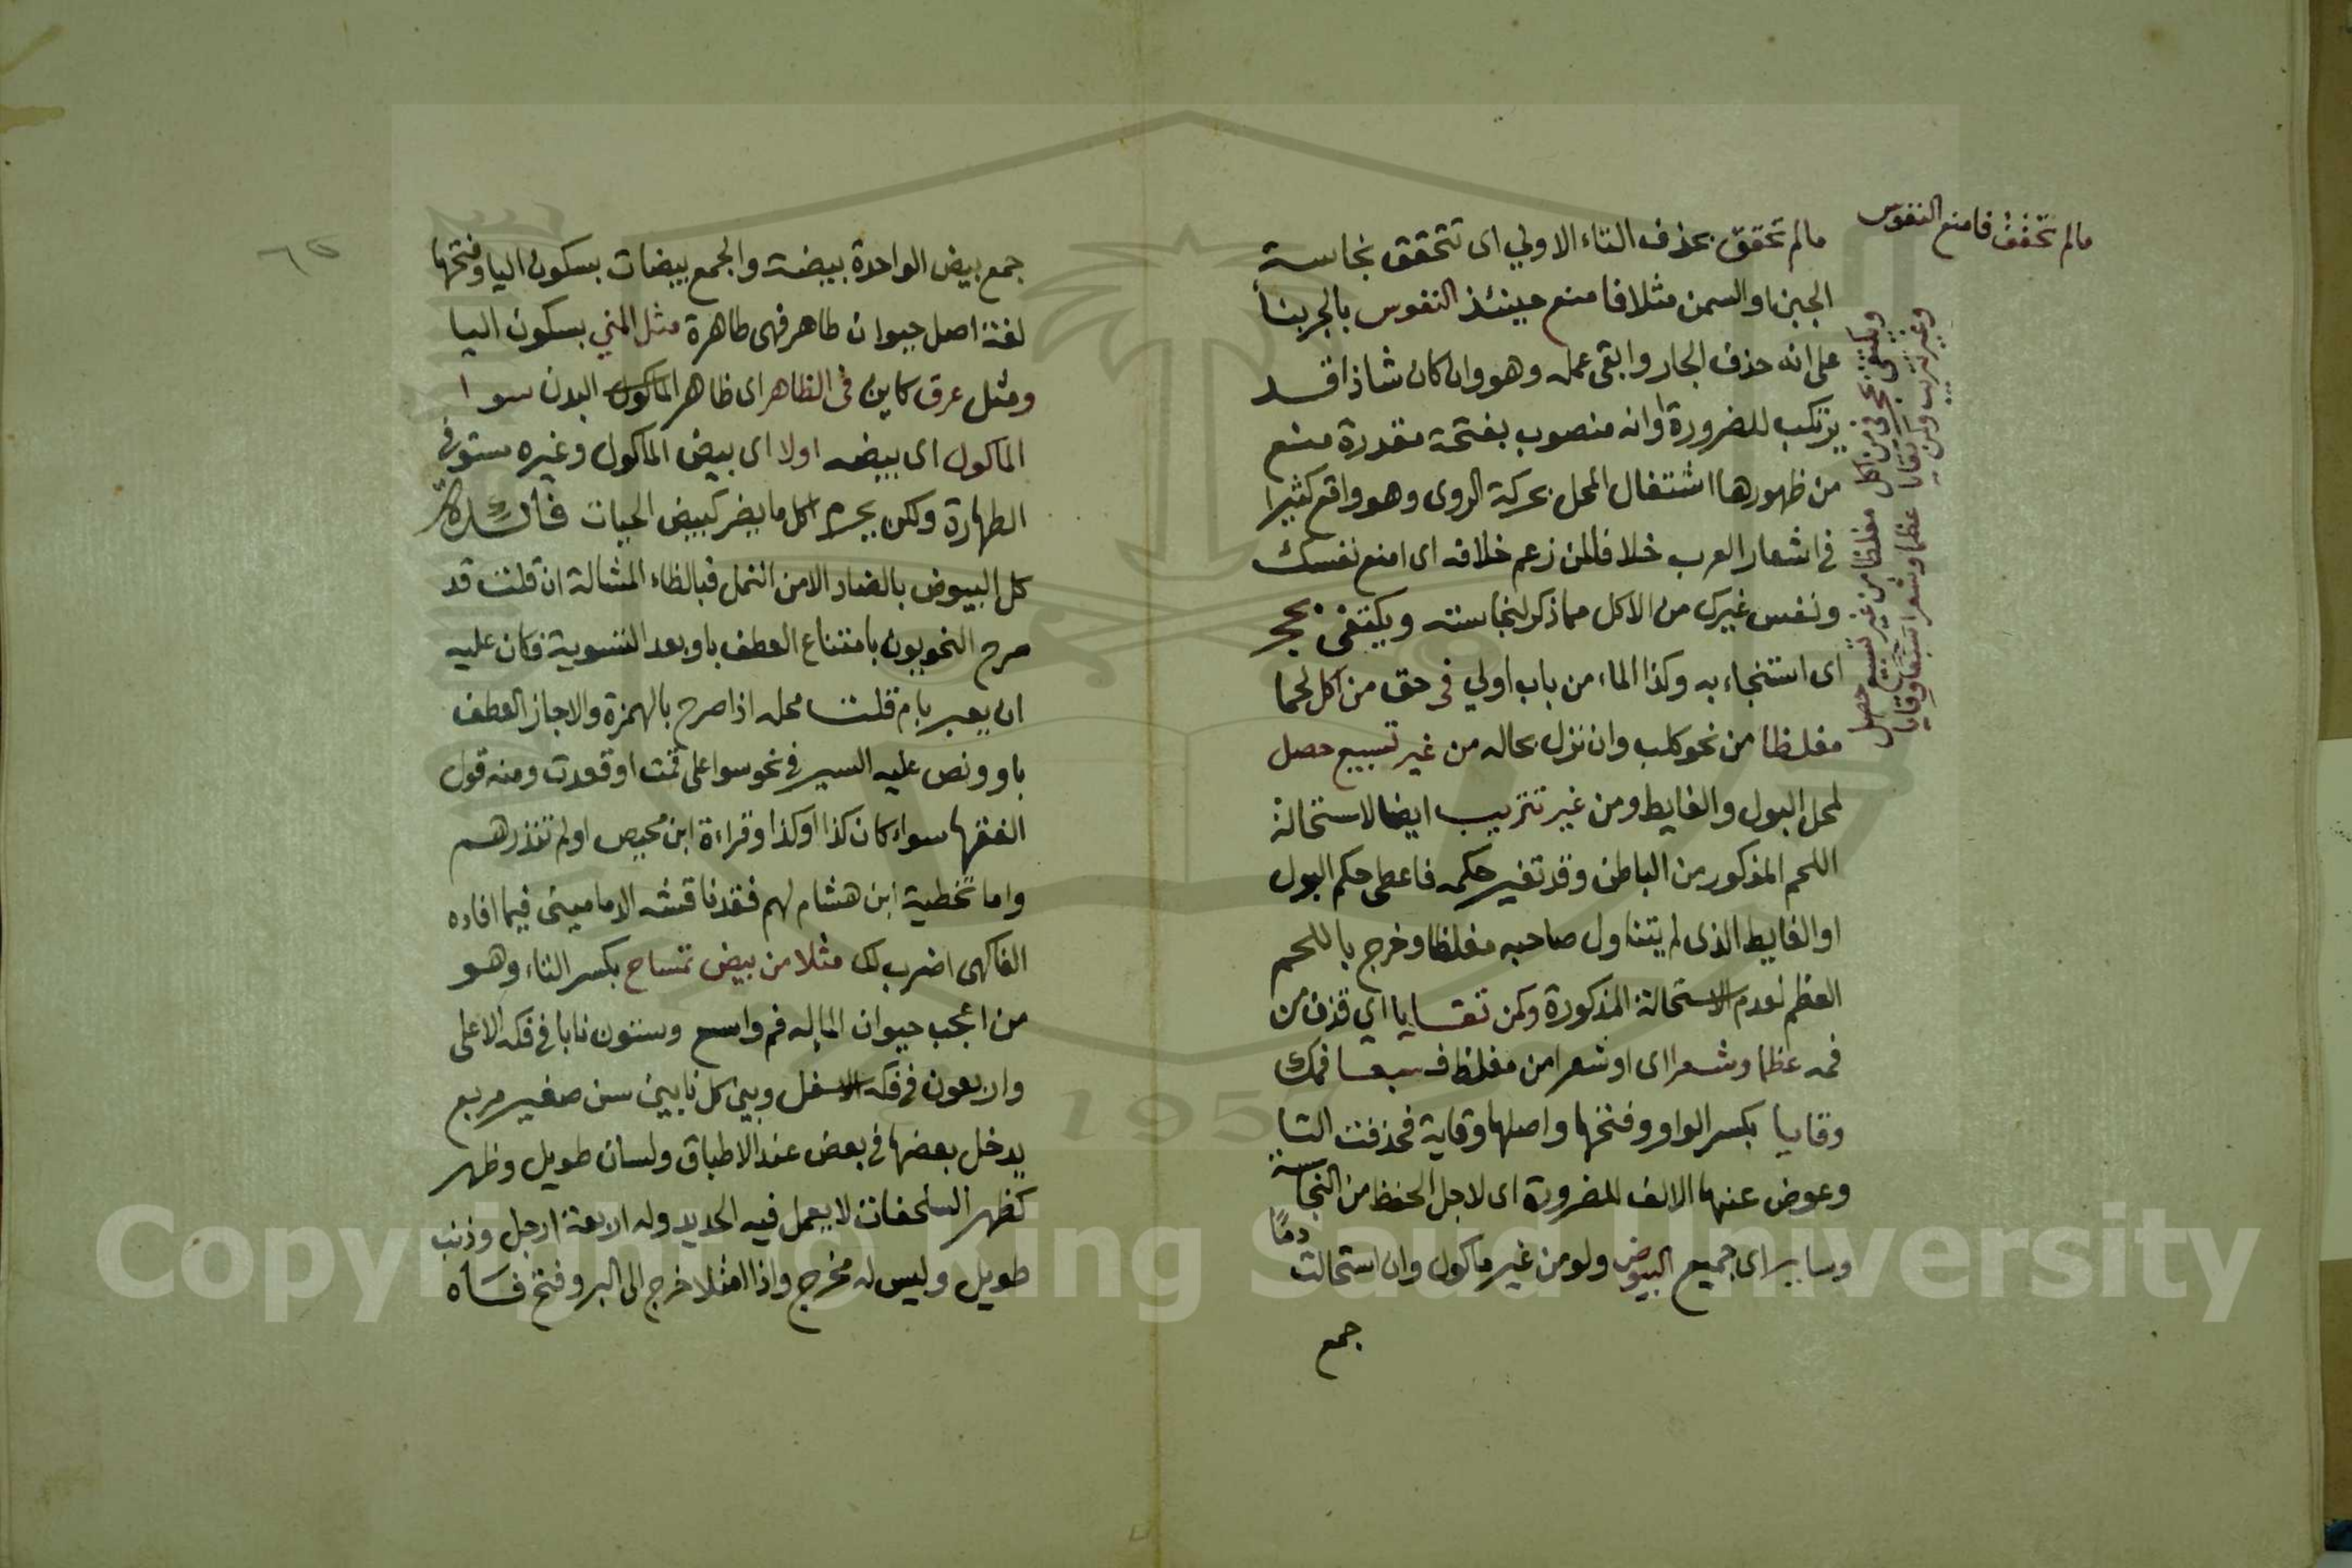 مالم تحقق فامنع النفوس
ويكتفى بحجر في من اكل مغلظا من غير تسبيع حصل
وغير تتريب ومن تقايا عظما وشعرا سبعا وقايا
مالم تحقق بحذف التاء الاولي اى تتحقق نجاسة
الجبن او السمن مثلا فامنع حينئذ النفوس بالجر بنأ
على انه حذف الجار وابقى عمله وهو وان كان شاذا قد
يرتكب للضرورة او انه منصوب بفتحة مقدرة منع
من ظهورها اشتغال المحل بحركة الروى وهو واقع كثيرا
في اشعار العرب خلافا لمن زعم خلافه اى امنع نفسك
ونفس غيرك من الاكل مما ذكر لنجاسته ويكتفى بحجر
اى استنجاء به وكذا الماء من باب اولي في حق من اكل لحما
مغلظا من نحو كلب وان نزل بحاله من غير تسبيع حصل
لمحل البول والغايط ومن غير تتريب ايضا لاستحالة
اللحم المذكور من الباطن وقد تغير حكمه فاعطى حكم البول
او الغايط الذى لم يتناول صاحبه مغلظا وخرج باللحم
العظم لعدم الاستحالة المذكورة ومن تقايا اي قذف من
فمه عظما وشعرا اى او شعرا من مغلظ فسبعا فمك
وقايا بكسر الواو وفتحها واصلها وقاية فحذفت التا
وعوض عنها الالف للضرورة اى لاجل الحفظ من النجاسة
وساير اى جميع البيوض ولو من غير ماكول وان استحالت دمًا
جمع
٦٥
جمع بيض الواحدة بيضة والجمع بيضات بسكون اليا وفتحها
لغة اصل حيوان طاهر فهى طاهرة مثل المني بسكون اليا
ومثل عرق كاين في الظاهر اى ظاهر الماكول البدن سوا
الماكول اى بيضه اولا اى بيض الماكول وغيره ستو في
الطهارة ولكن يحرم اكل ما يضر كبيض الحيات فائدة
كل البيوض بالضاد الا من النمل فبالظاء المشالة ان قلت قد
صرح النحويون بامتناع العطف باو بعد التسوية فكان عليه
ان يعبر بام قلت محله اذا صرح بالهمزة والا جاز العطف
باو ونص عليه السير في نحو سوا على قمت او قعدت ومنه قول
الفقها سواء كان كذا او كذا وقراءة ابن محيص اولم تنذرهم
واما تخطية ابن هشام لهم فقد ناقشه الدماميني فيما افاده
الفاكهى اضرب لك مثلا من بيض تمساح بكسر التاء وهو
من اعجب حيوان الما له فم واسع وستون نابا في فكه الاعلى
واربعون في فكه الاسفل وبين كل نابين سن صغير مربع
يدخل بعضها في بعض عند الاطباق ولسان طويل وظهر
كظهر السلحفات لا يعمل فيه الحديد وله اربعة ارجل وذنب
طويل وليس له مخرج واذا امتلا خرج الى البر وفتح فاه
Copyright © King Saud University
1957